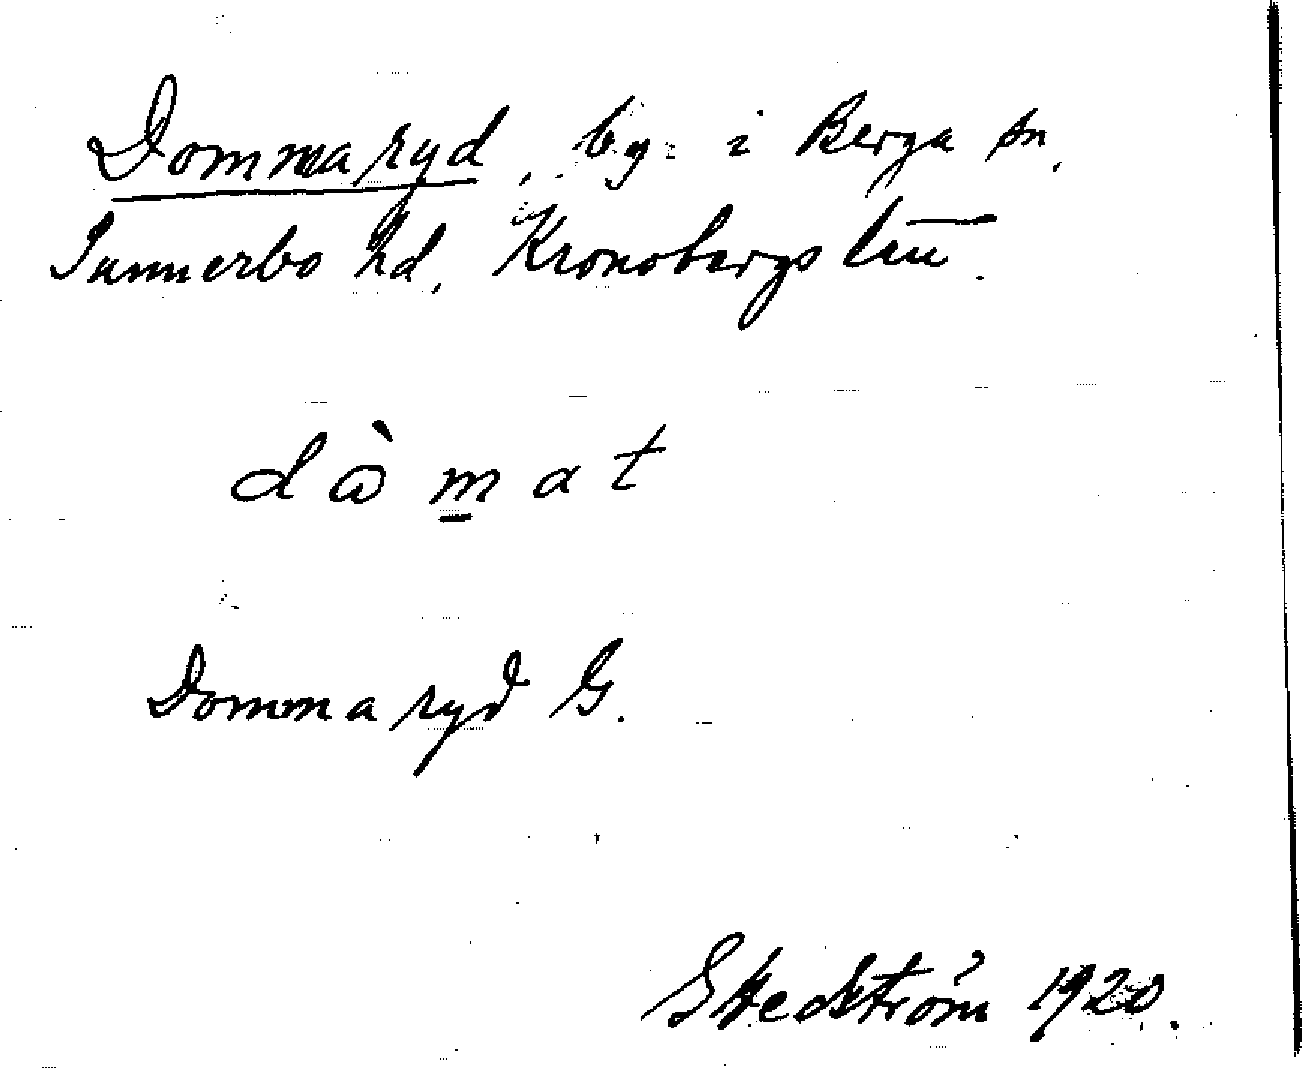 Dommaryd, by i Berga sn,
Sunnerbo hd, Kronobergs län.
dὼm̲at
Dommaryd G.
G Hedström 1920.